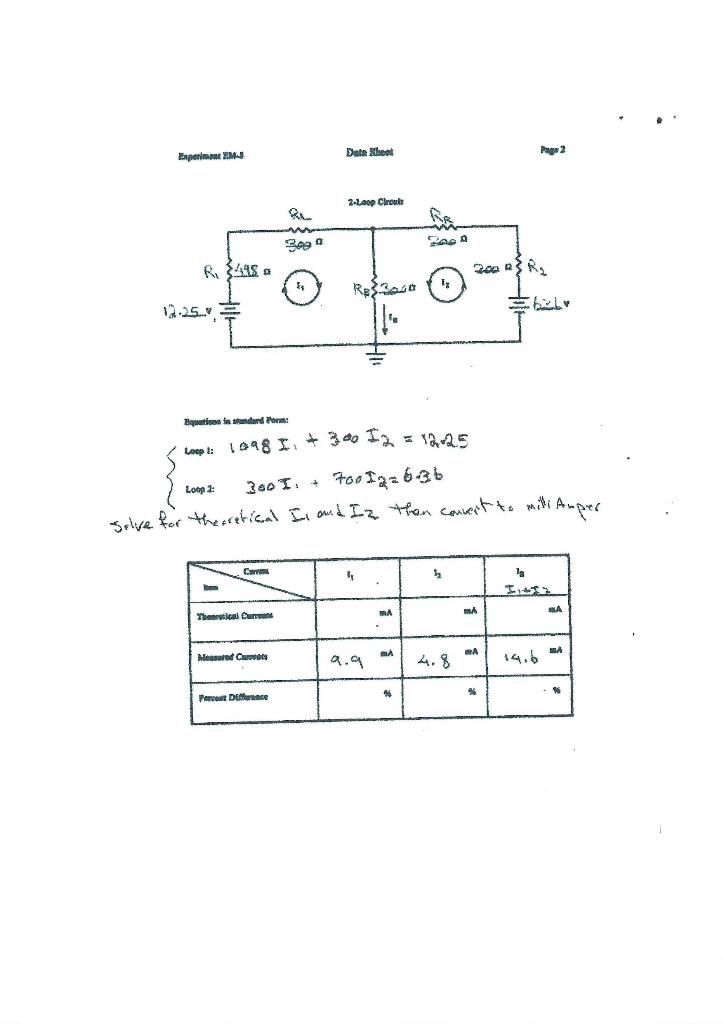 Experiment EM-8 Data Sheet Page 2
2-Loop Circuit
RL RR
300 Ω 300 Ω
R1 498 Ω I1 RB 300 Ω I2 200 Ω R2
12.25 V IB V
Equations in standard Form:
Loop 1: 1098 I1 + 300 I2 = 12.25
Loop 2: 300 I1 + 700 I2 = 6.36
Solve for theoretical I1 and I2 then convert to milli Amper
Current I1 I2 IB
Item I1+I2
Theoretical Currents mA mA mA
Measured Currents 9.9 mA 4.8 mA 14.6 mA
Percent Difference % % %